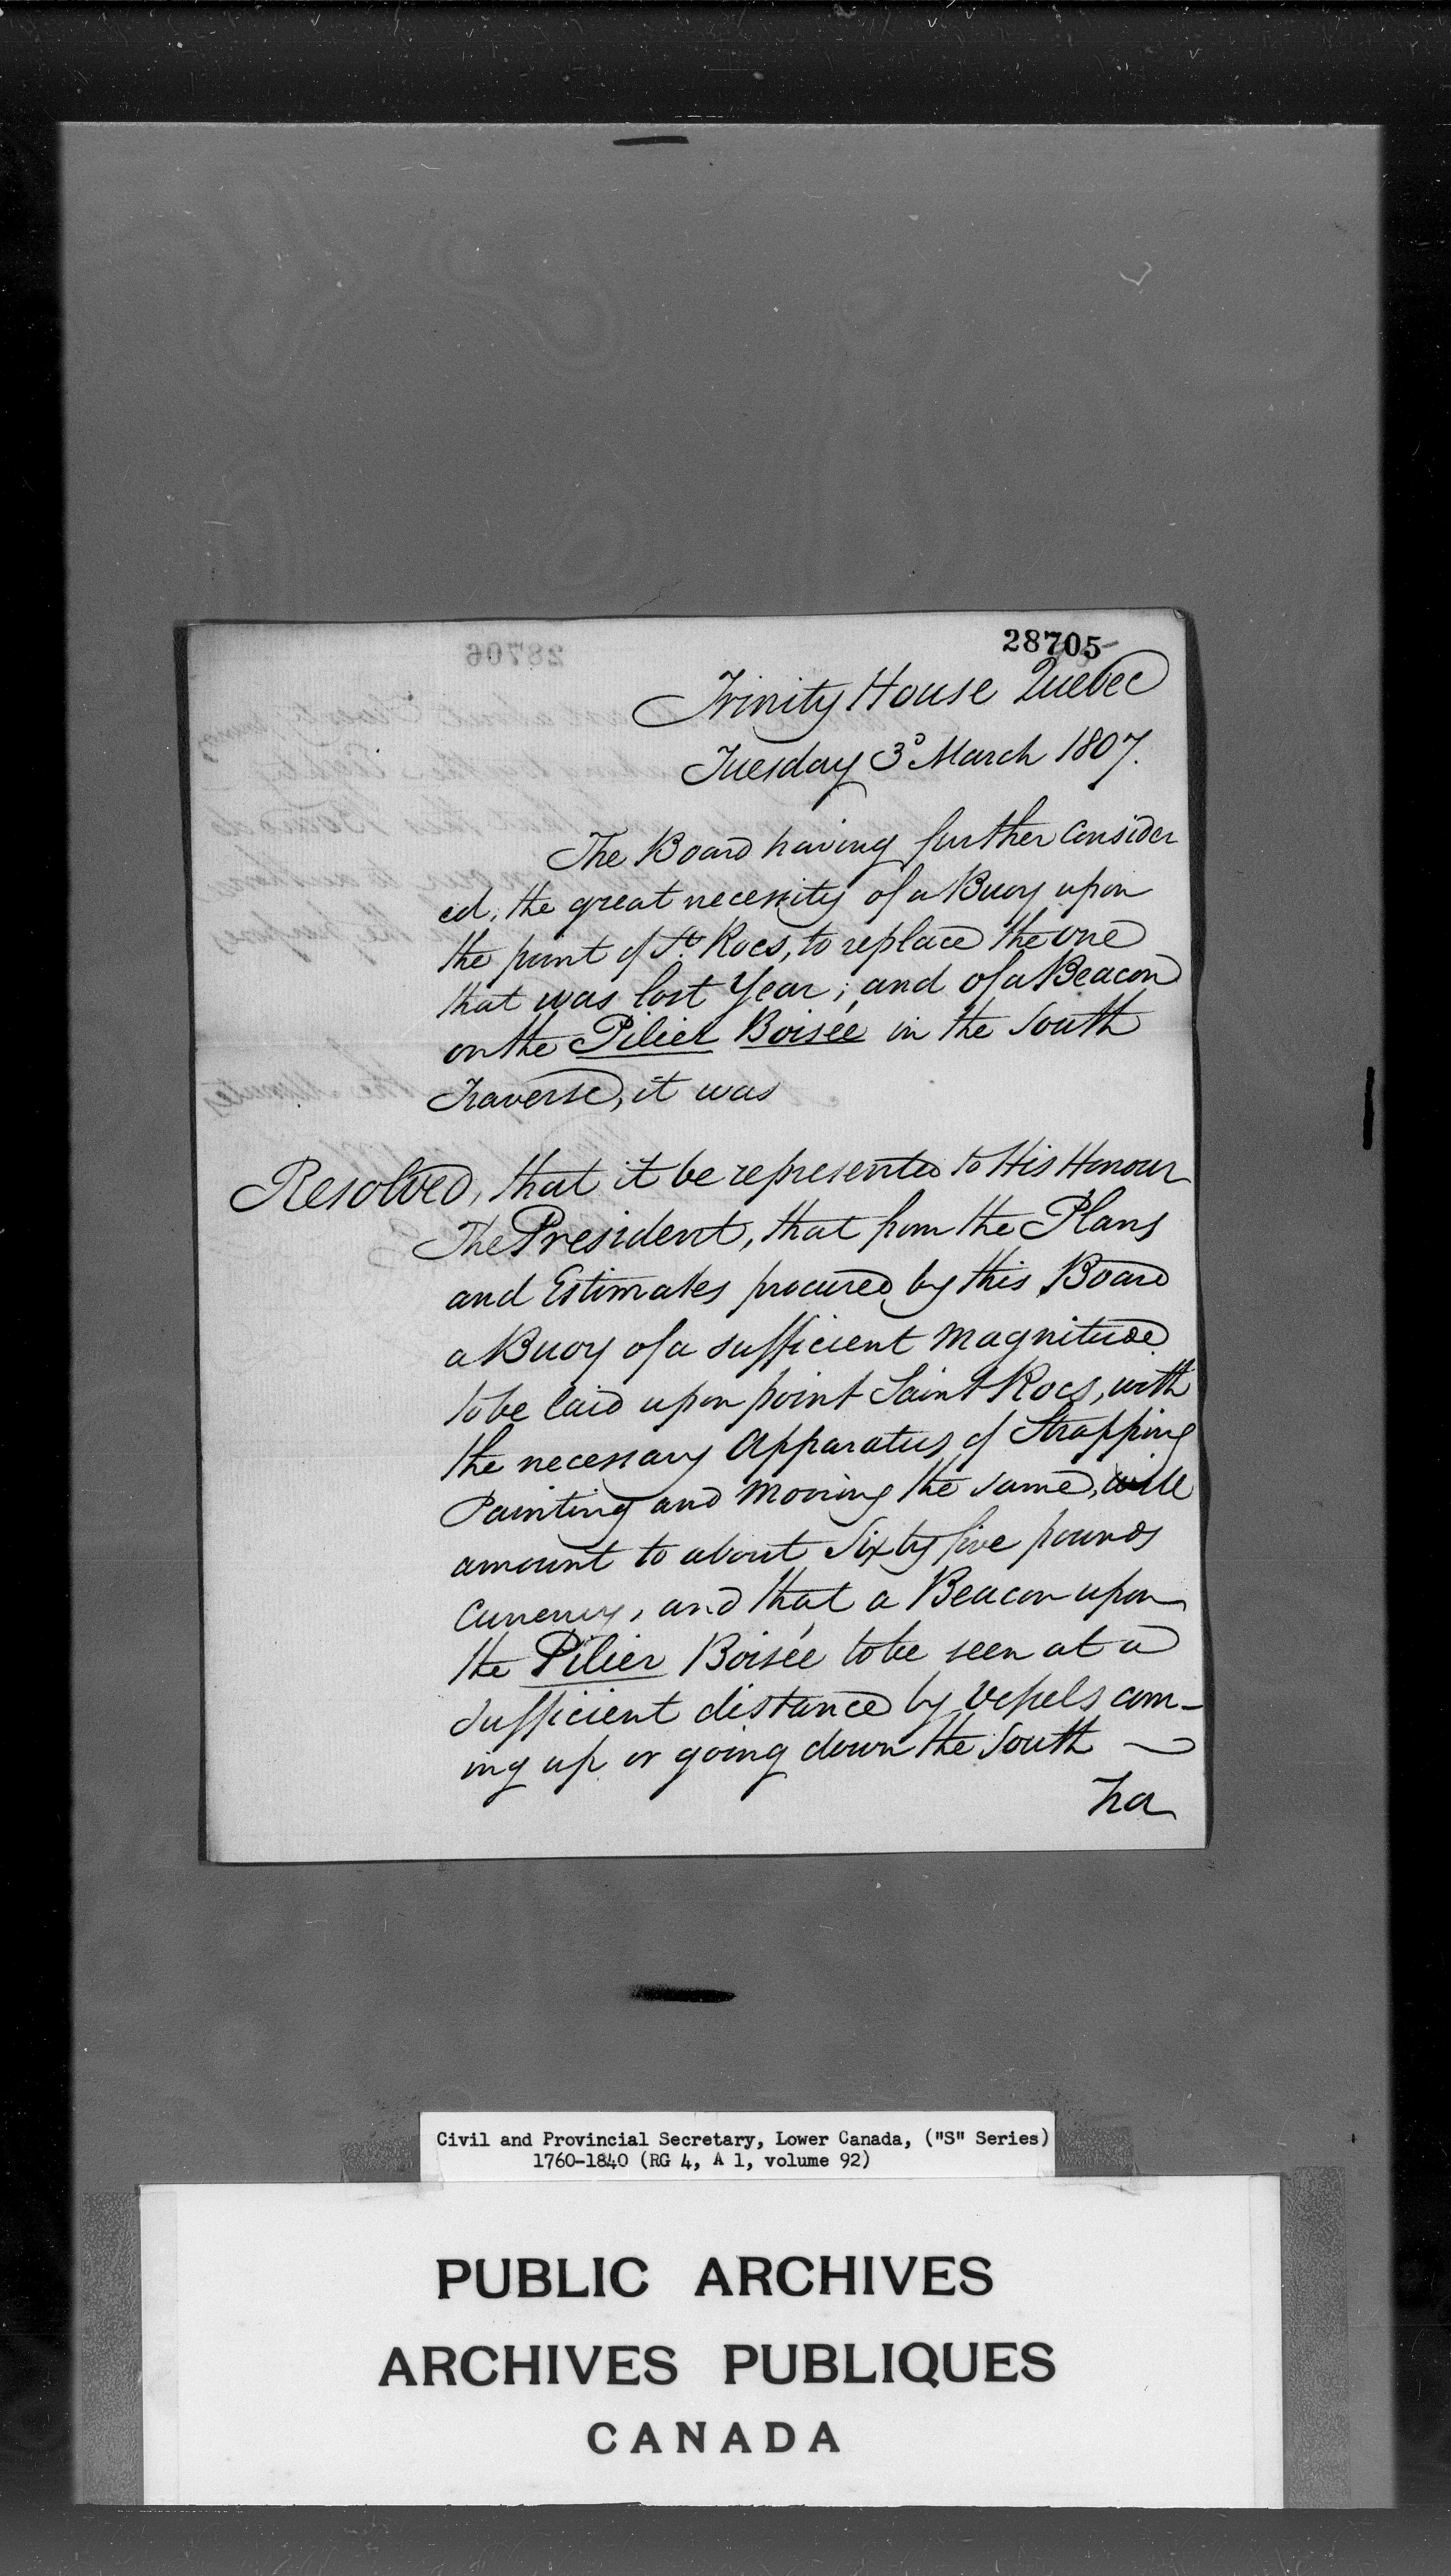 28705
Trinity House Quebec
Tuesday 3d March 1807.
The Board having further Consider
ed, the great necessity of a Buoy upon
the point of St. Rocs, to replace the one
that was lost Year; and of a Beacon
on the Pilier Boisée in the South
Traverse, it was
Resolved, that it be represented to His Honour
The President, that from the Plans
and Estimates procured by this Board
a Buoy of a sufficient Magnitude
to be laid upon point Saint Rocs, with
the necessary Apparatus of Strapping
Painting and Mooring the same, will
amount to about Sixty five pounds
Currency, and that a Beacon upon
the Pilier Boisée to be seen at a
sufficient distance by Vessels com-
ing up or going down the South
Tra
Civil and Provincial Secretary, Lower Canada, ("S" Series)
1760-1840 (RG 4, A 1, volume 92)
PUBLIC ARCHIVES
ARCHIVES PUBLIQUES
CANADA